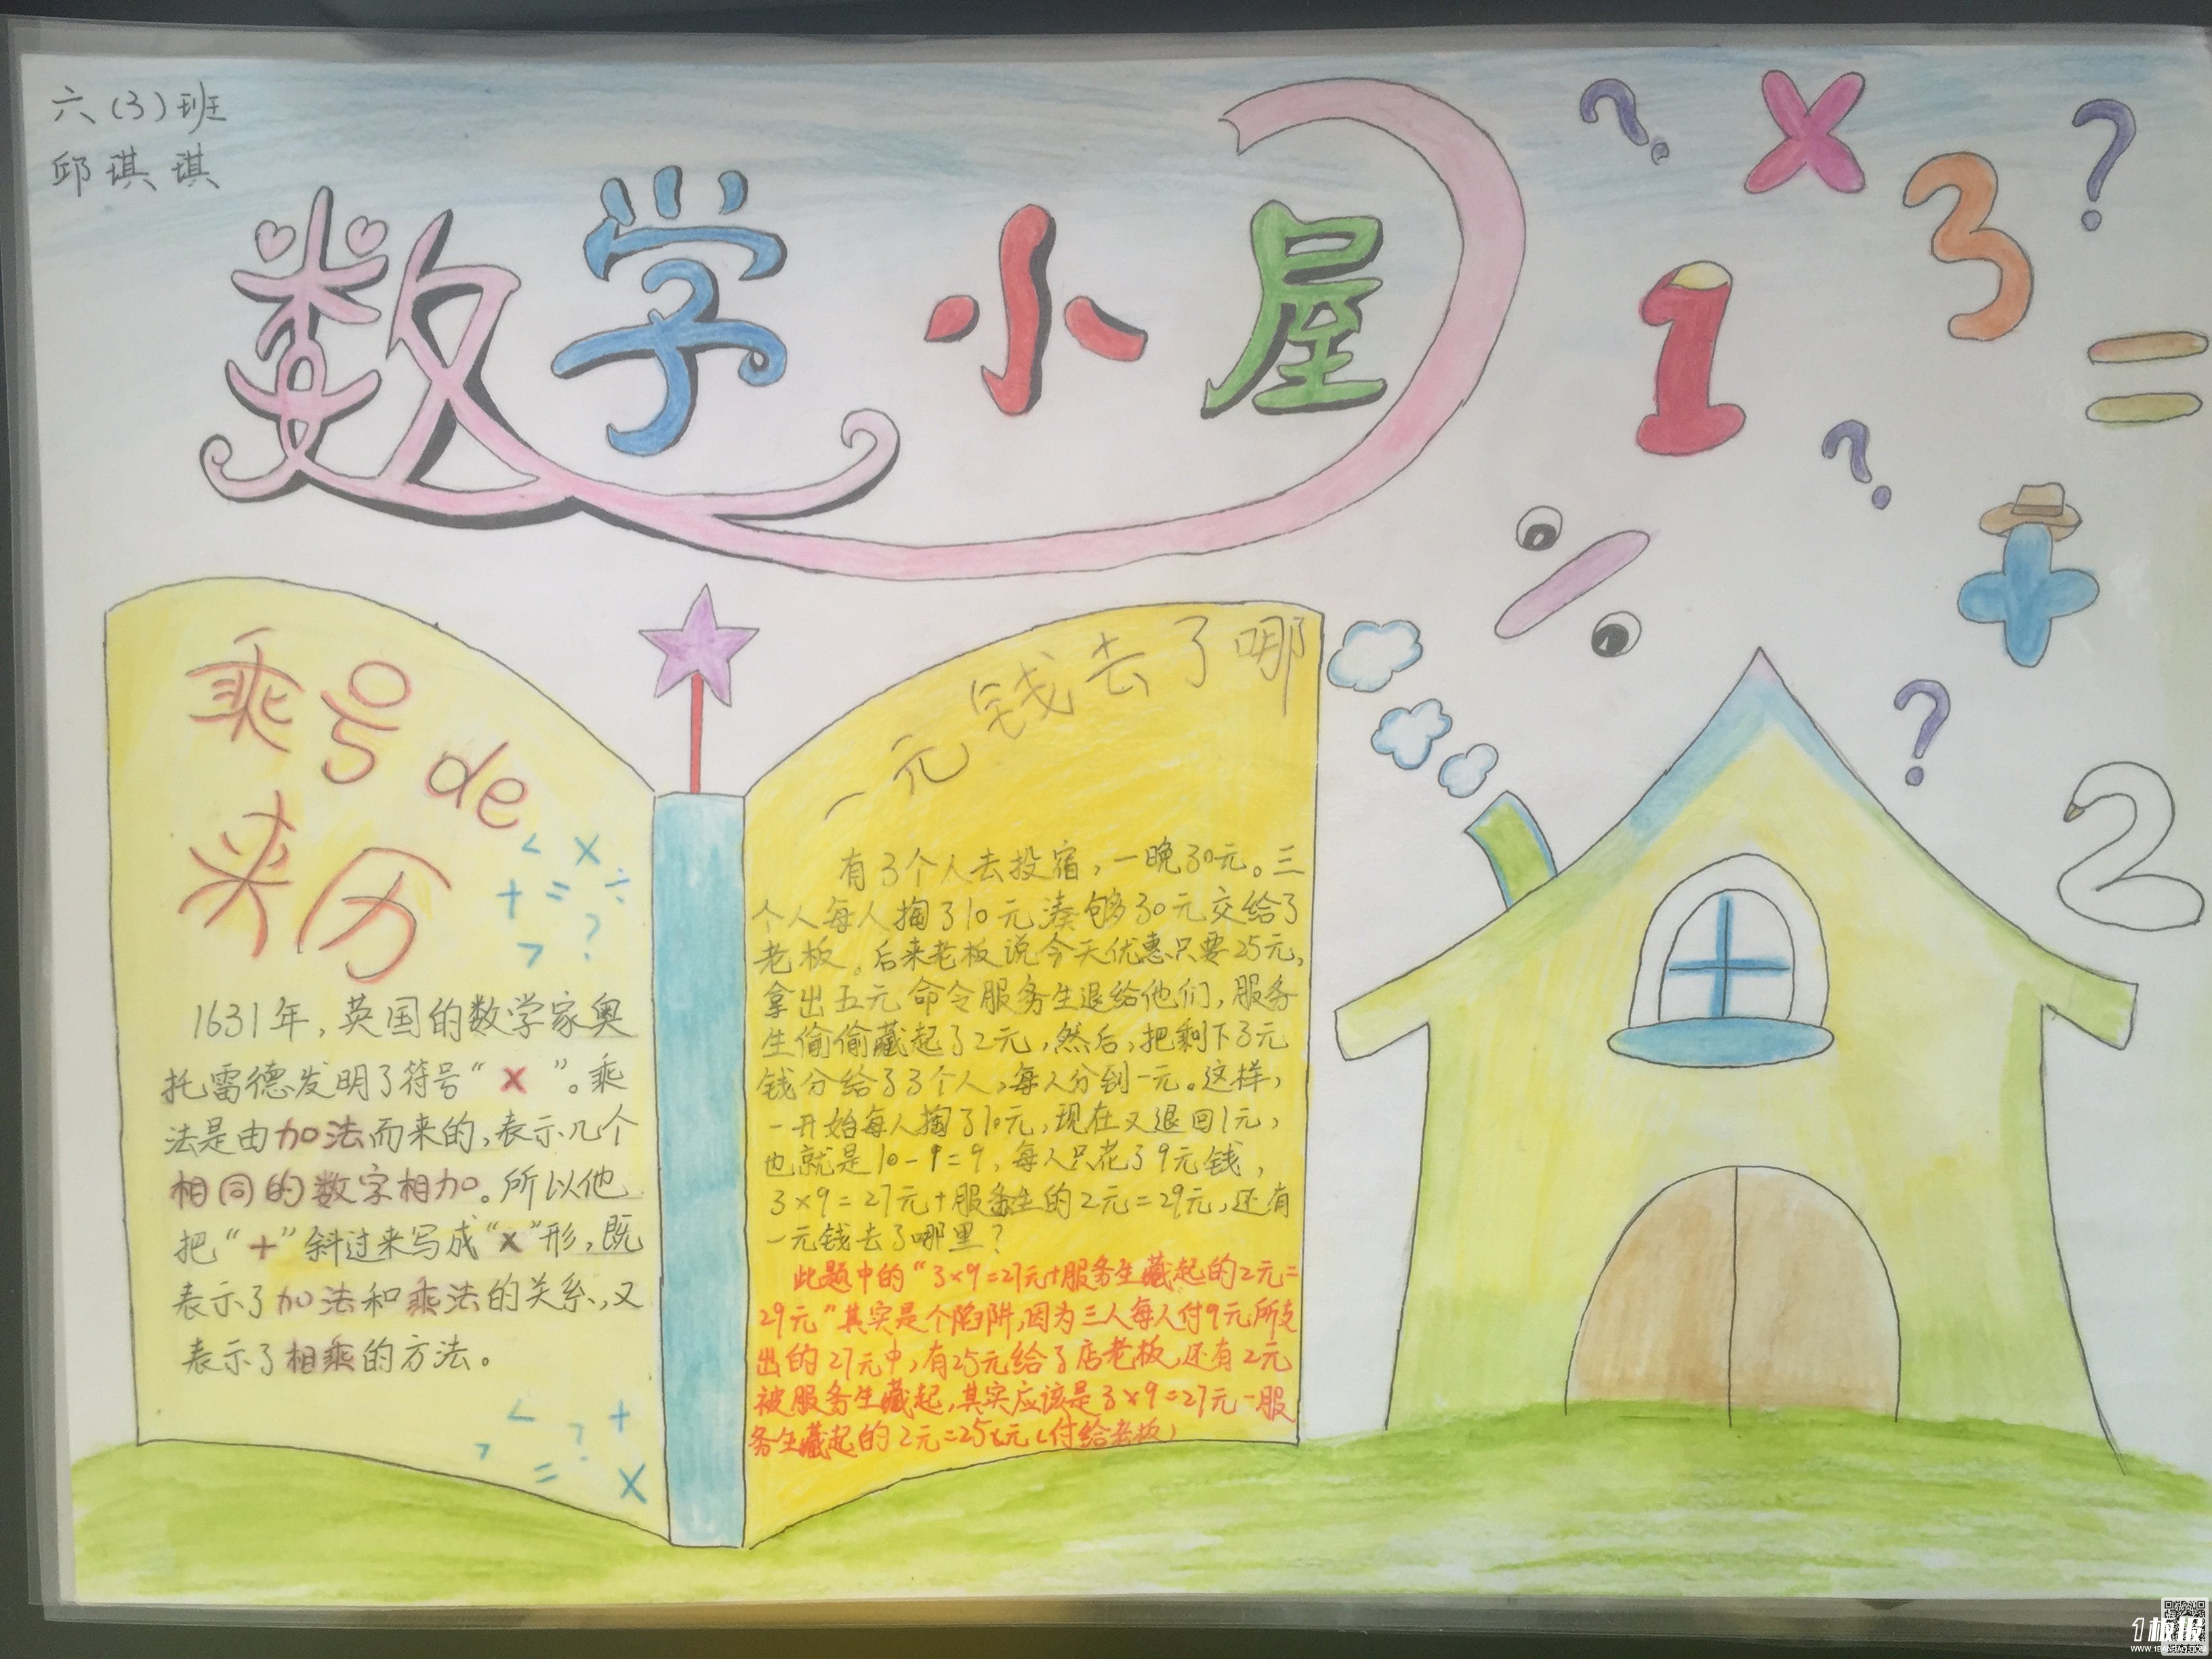 六(3)班
邱琪琪
数学小屋
乘号de
来历
1631年,英国的数学家奥
托雷德发明了符号“×”。乘
法是由加法而来的,表示几个
相同的数字相加。所以他
把“+”斜过来写成“×”形,既
表示了加法和乘法的关系,又
表示了相乘的方法。
一元钱去了哪
有3个人去投宿,一晚30元。三
个人每人掏了10元凑够30元交给了
老板。后来老板说今天优惠只要25元,
拿出五元命令服务生退给他们,服务
生偷偷藏起了2元,然后,把剩下3元
钱分给了3个人,每人分到一元。这样,
一开始每人掏了10元,现在又退回1元,
也就是10-9=9,每人只花了9元钱,
3×9=27元+服务生的2元=29元,还有
一元钱去了哪里?
此题中的“3×9=27元+服务生藏起的2元=
29元”其实是个陷阱,因为三人每人付9元所支
出的27元中,有25元给了店老板,还有2元
被服务生藏起,其实应该是3×9=27元-服
务生藏起的2元=25元(付给老板)
? × ?
3
1
=
?
%
+
?
2
< ×
+ = ÷
> ?
< +
> ?
= ×
1板报
WWW.1BANBAO.COM